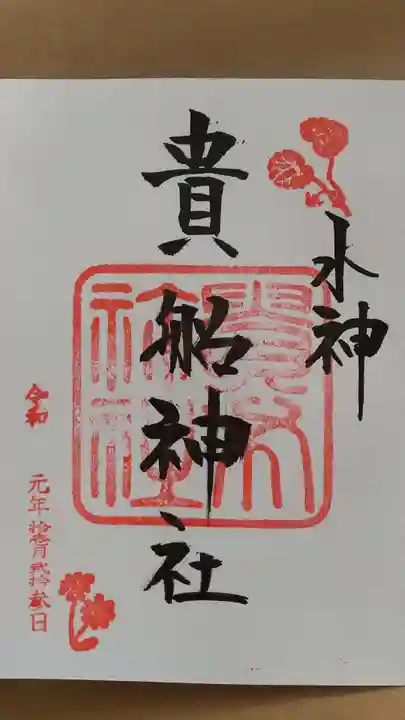 水神
貴船神社
令和
元年拾壱月弐拾参日